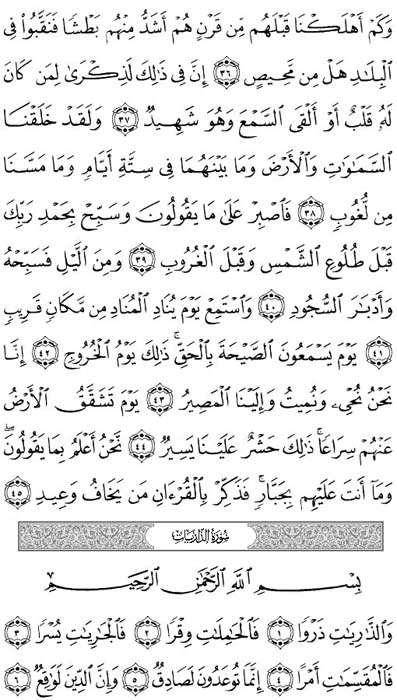 وَكَمْ أَهْلَكْنَا قَبْلَهُم مِّن قَرْنٍ هُمْ أَشَدُّ مِنْهُم بَطْشًا فَنَقَّبُوا۟ فِى
ٱلْبِلَٰدِ هَلْ مِن مَّحِيصٍ ٣٦ إِنَّ فِى ذَٰلِكَ لَذِكْرَىٰ لِمَن كَانَ
لَهُۥ قَلْبٌ أَوْ أَلْقَى ٱلسَّمْعَ وَهُوَ شَهِيدٌ ٣٧ وَلَقَدْ خَلَقْنَا
ٱلسَّمَٰوَٰتِ وَٱلْأَرْضَ وَمَا بَيْنَهُمَا فِى سِتَّةِ أَيَّامٍ وَمَا مَسَّنَا
مِن لُّغُوبٍ ٣٨ فَٱصْبِرْ عَلَىٰ مَا يَقُولُونَ وَسَبِّحْ بِحَمْدِ رَبِّكَ
قَبْلَ طُلُوعِ ٱلشَّمْسِ وَقَبْلَ ٱلْغُرُوبِ ٣٩ وَمِنَ ٱلَّيْلِ فَسَبِّحْهُ
وَأَدْبَٰرَ ٱلسُّجُودِ ٤٠ وَٱسْتَمِعْ يَوْمَ يُنَادِ ٱلْمُنَادِ مِن مَّكَانٍ قَرِيبٍ
٤١ يَوْمَ يَسْمَعُونَ ٱلصَّيْحَةَ بِٱلْحَقِّ ۚ ذَٰلِكَ يَوْمُ ٱلْخُرُوجِ ٤٢ إِنَّا
نَحْنُ نُحْىِۦ وَنُمِيتُ وَإِلَيْنَا ٱلْمَصِيرُ ٤٣ يَوْمَ تَشَقَّقُ ٱلْأَرْضُ
عَنْهُمْ سِرَاعًا ۚ ذَٰلِكَ حَشْرٌ عَلَيْنَا يَسِيرٌ ٤٤ نَّحْنُ أَعْلَمُ بِمَا يَقُولُونَ ۖ
وَمَآ أَنتَ عَلَيْهِم بِجَبَّارٍ ۖ فَذَكِّرْ بِٱلْقُرْءَانِ مَن يَخَافُ وَعِيدِ ٤٥
سُورَةُ الذَّارِيَاتِ
بِسْمِ ٱللَّهِ ٱلرَّحْمَٰنِ ٱلرَّحِيمِ
وَٱلذَّٰرِيَٰتِ ذَرْوًا ١ فَٱلْحَٰمِلَٰتِ وِقْرًا ٢ فَٱلْجَٰرِيَٰتِ يُسْرًا ٣
فَٱلْمُقَسِّمَٰتِ أَمْرًا ٤ إِنَّمَا تُوعَدُونَ لَصَادِقٌ ٥ وَإِنَّ ٱلدِّينَ لَوَٰقِعٌ ٦